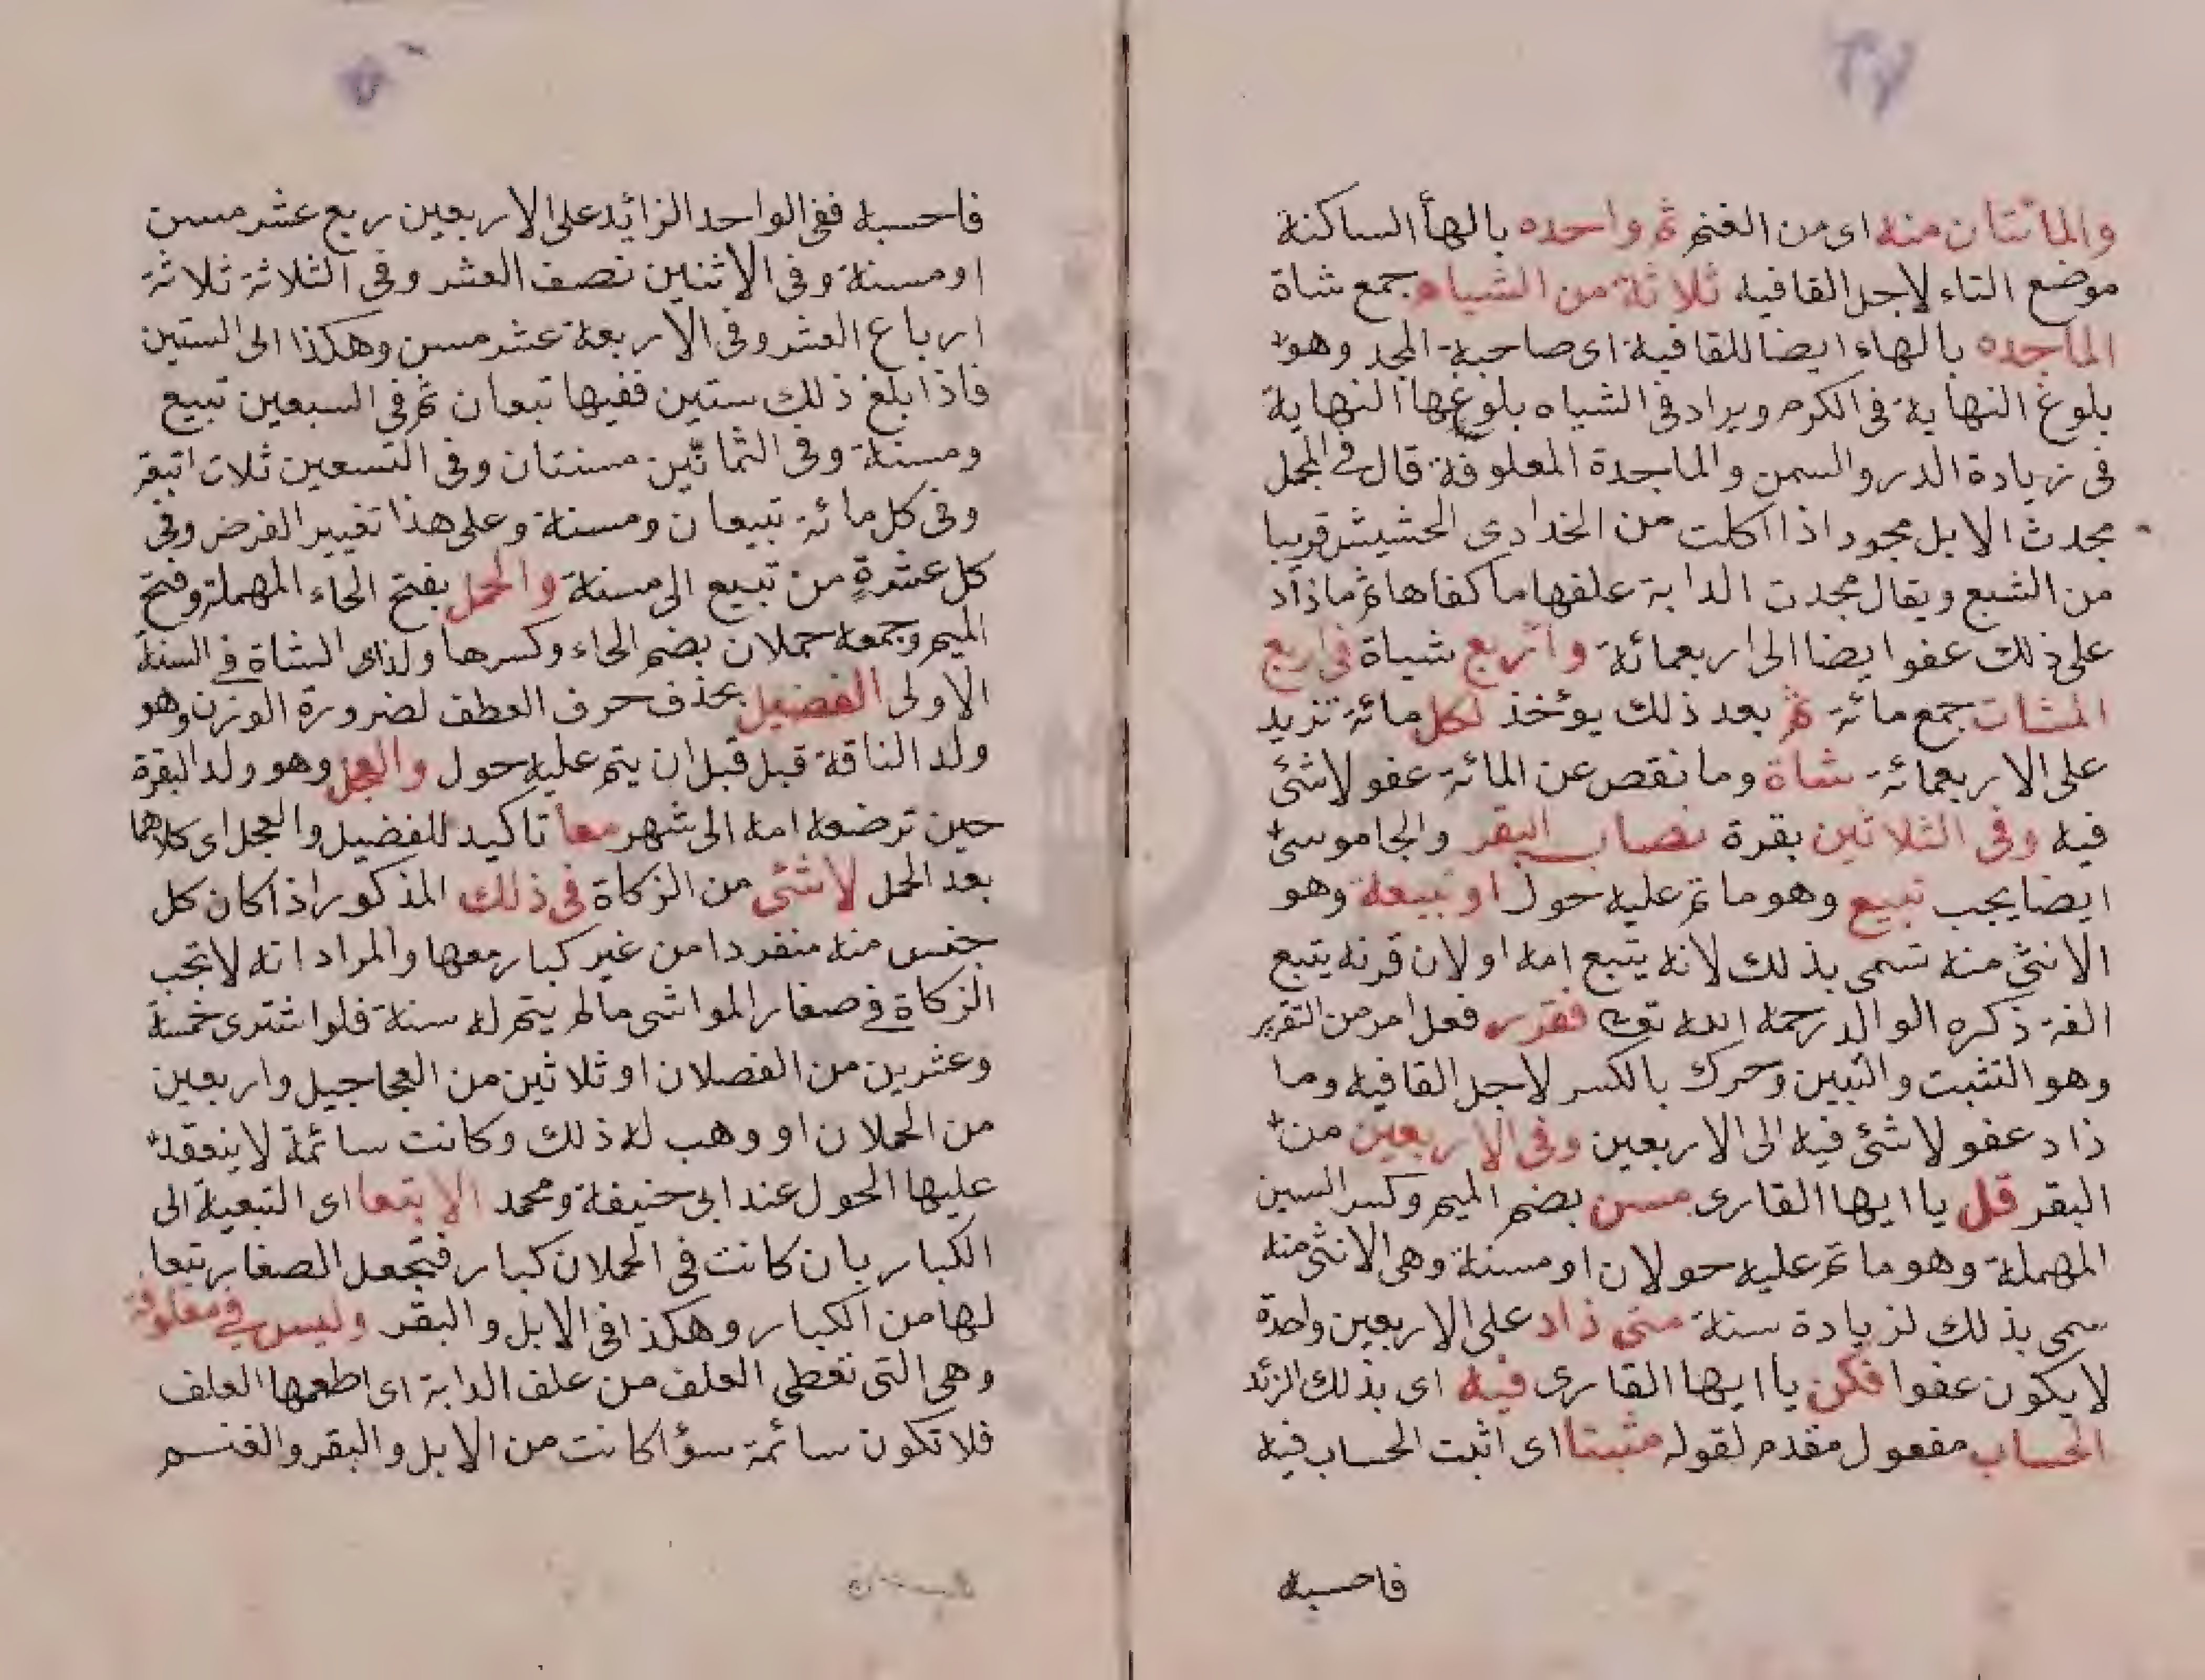 والمائتان منه اى من الغنم ثم واحده بالهأ الساكنة
موضع التاء لاجل القافيه ثلاثة من الشياه جمع شاة
الماجده بالهاء ايضا للقافية اى صاحبة المجد وهو
بلوغ النهاية فى الكرم ويراد فى الشياه بلوغها النهاية
فى زيادة الدر والسمن والماجدة المعلوفة قال فى المجمل
مجدث الابل مجود اذا اكلت من الخدادى الحشيش قريبا
من الشبع ويقال مجدت الدابة علفهاما كفاها ثم ماذاد
على ذلك عفوا يضا الى اربعمائة واربع شياة فى اربع
المئات جمع مائة ثم بعد ذلك يؤخذ لكل مائة تزيد
على الاربعمائة شاة وما نقص عن المائة عفو لا شئ
فيه وفى الثلاثين بقرة نصاب البقر والجاموسى
ايضا يجب تبيع وهو ما تم عليه حول او تبيعة وهو
الانثى منه سمى بذلك لانه يتبع امه اولان قرنه يتبع
الفه ذكره الوالد رحمه الله تعالى فقرر فعل امر من التقرير
وهو التثبت والتبين وحرك بالكسر لاجل القافيه وما
ذاد عفو لا شئ فيه الى الاربعين وفى الاربعين من
البقر قل يا ايها القارى مسن بضم الميم وكسر السين
المهملة وهو ما تم عليه حولان او مسنة وهى الانثى منه
سمى بذلك لزيادة سنة متى ذاد على الاربعين واحدة
لا يكون عفوا فكن يا ايها القارى فيه اى بذلك الزئد
الحساب مفعول مقدم لقوله مثبتا اى اثبت الحساب فيه
فاحسبه
فاحسبه ففى الواحد الزائد على الاربعين ربع عشر مسن
او مسنة وفى الاثنين نصف العشر وفى الثلاثة ثلاثة
ارباع العشر وفى الاربعة عشر مسن وهكذا الى الستين
فاذا بلغ ذلك ستين ففيها تبعان ثم فى السبعين تبيع
ومسنة وفى الثمانين مسنتان وفى التسعين ثلاث اتبعة
وفى كل مائة تبيعان ومسنة وعلى هذا تغيير الفرض وفى
كل عشرةٍ من تبيع الى مسنة والحمل بفتح الحاء المهملة وفتح
الميم وجمعه حملان بضم الحاء وكسرها ولذاى الشاة فى السنة
الاولى الفضيل بحذف حرف العطف لضرورة الوزن وهو
ولد الناقة قبل قبل ان يتم عليه حول والعجل وهو ولد البقرة
حين ترضعه امه الى شهر معا تاكيد للفضيل والعجل اى كلاهما
بعد الحمل لا شئى من الزكاة فى ذلك المذكور اذا كان كل
جنس منه منفردا من غير كبار معها والمراد انه لا تجب
الزكاة فى صغار المواشى مالم يتم له سنة فلو اشترى خمسة
وعشرين من الفصلان او ثلاثين من العجاجيل واربعين
من الحملان او وهب له ذلك وكانت سائمة لا ينعقد
عليها الحول عند ابى حنيفة ومحمد الا تبعا اى التبعية الى
الكبار بان كانت فى الحملان كبار فتجعل الصغار تبعا
لها من الكبار وهكذا فى الابل والبقر وليس فى معلوفة
وهى التى تعطى العلف من علف الدابة اى اطعمها العلف
فلا تكون سائمة سؤا كانت من الابل والبقر والغنم